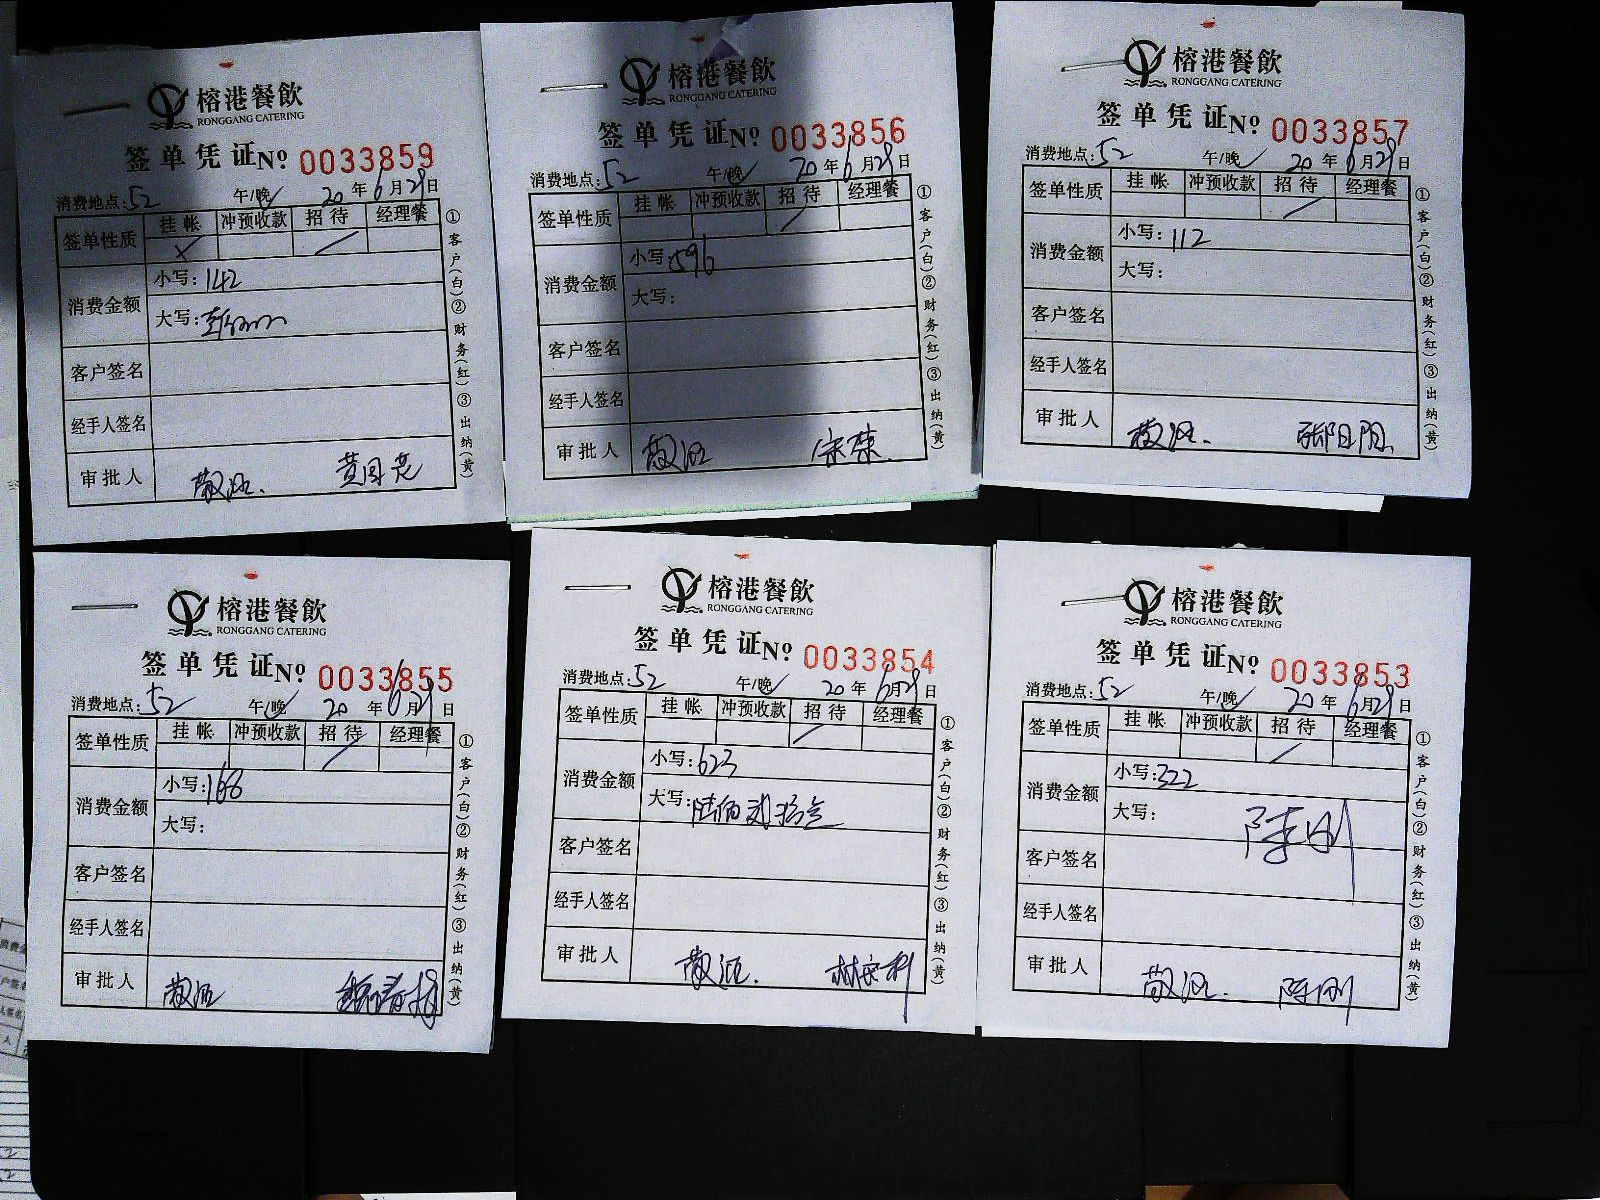 榕港餐飲
RONGGANG CATERING
签单凭证 No 0033859
消费地点: 52 午/晚 20年6月29日
签单性质 挂帐 冲预收款 招待 经理餐
消费金额 小写: 142
大写:
客户签名
经手人签名
审批人
①客户(白)②财务(红)③出纳(黄)
榕港餐飲
RONGGANG CATERING
签单凭证 No 0033856
消费地点: 52 午/晚 20年6月29日
签单性质 挂帐 冲预收款 招待 经理餐
消费金额 小写: 596
大写:
客户签名
经手人签名
审批人
①客户(白)②财务(红)③出纳(黄)
榕港餐飲
RONGGANG CATERING
签单凭证 No 0033857
消费地点: 52 午/晚 20年6月29日
签单性质 挂帐 冲预收款 招待 经理餐
消费金额 小写: 112
大写:
客户签名
经手人签名
审批人
①客户(白)②财务(红)③出纳(黄)
榕港餐飲
RONGGANG CATERING
签单凭证 No 0033855
消费地点: 52 午/晚 20年6月29日
签单性质 挂帐 冲预收款 招待 经理餐
消费金额 小写: 168
大写:
客户签名
经手人签名
审批人
①客户(白)②财务(红)③出纳(黄)
榕港餐飲
RONGGANG CATERING
签单凭证 No 0033854
消费地点: 52 午/晚 20年6月29日
签单性质 挂帐 冲预收款 招待 经理餐
消费金额 小写: 623
大写: 陆佰
客户签名
经手人签名
审批人
①客户(白)②财务(红)③出纳(黄)
榕港餐飲
RONGGANG CATERING
签单凭证 No 0033853
消费地点: 52 午/晚 20年6月29日
签单性质 挂帐 冲预收款 招待 经理餐
消费金额 小写: 322
大写: 陈刚
客户签名
经手人签名
审批人 陈刚
①客户(白)②财务(红)③出纳(黄)